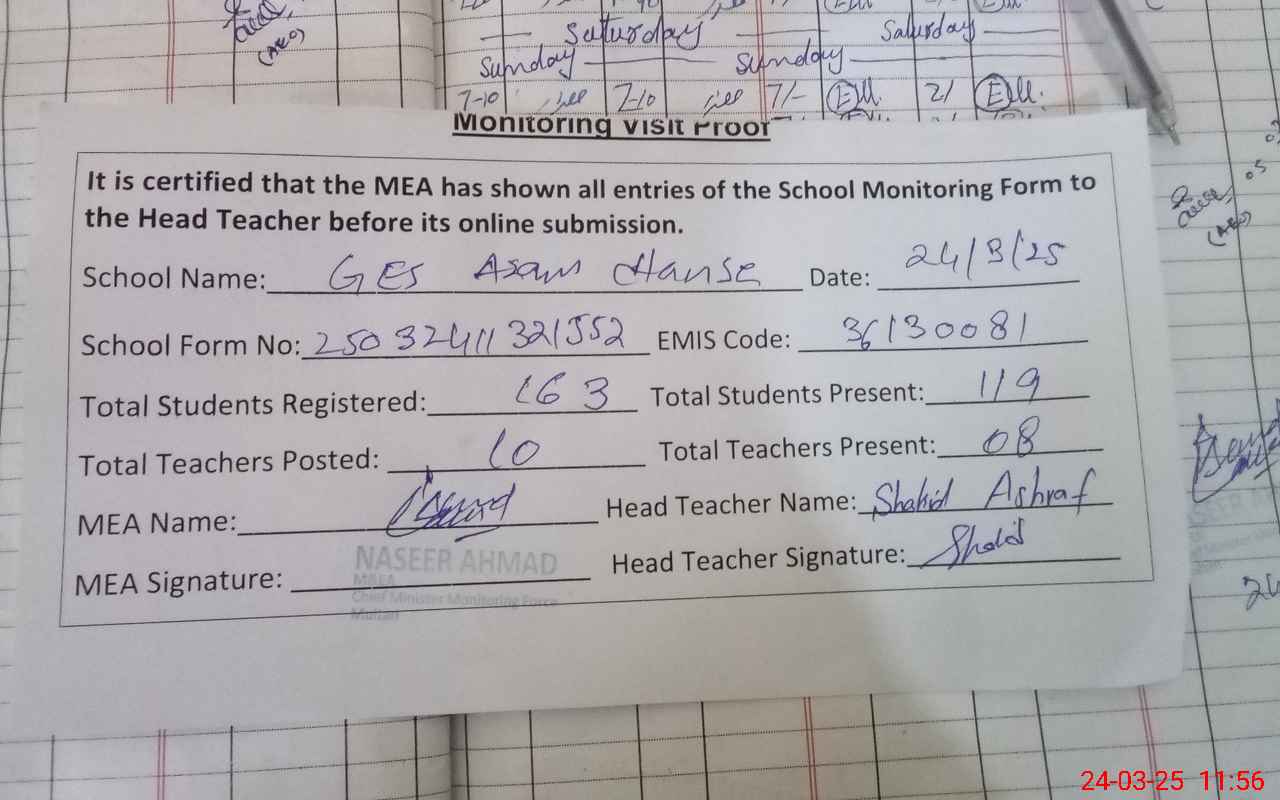 Saturday Saturday
Sunday Sunday
7-10 7-10 7/- Ell. 2/ Ell.
Monitoring Visit Proof
It is certified that the MEA has shown all entries of the School Monitoring Form to
the Head Teacher before its online submission.
School Name: GES Asam Hanse Date: 24/3/25
School Form No: 25032411321552 EMIS Code: 36130081
Total Students Registered: 163 Total Students Present: 119
Total Teachers Posted: 10 Total Teachers Present: 08
MEA Name: Head Teacher Name: Shahid Ashraf
MEA Signature: Head Teacher Signature: Shahid
NASEER AHMAD
M&EA
Chief Minister Monitoring Force
Multan
(AEO)
(AEO)
24-03-25 11:56